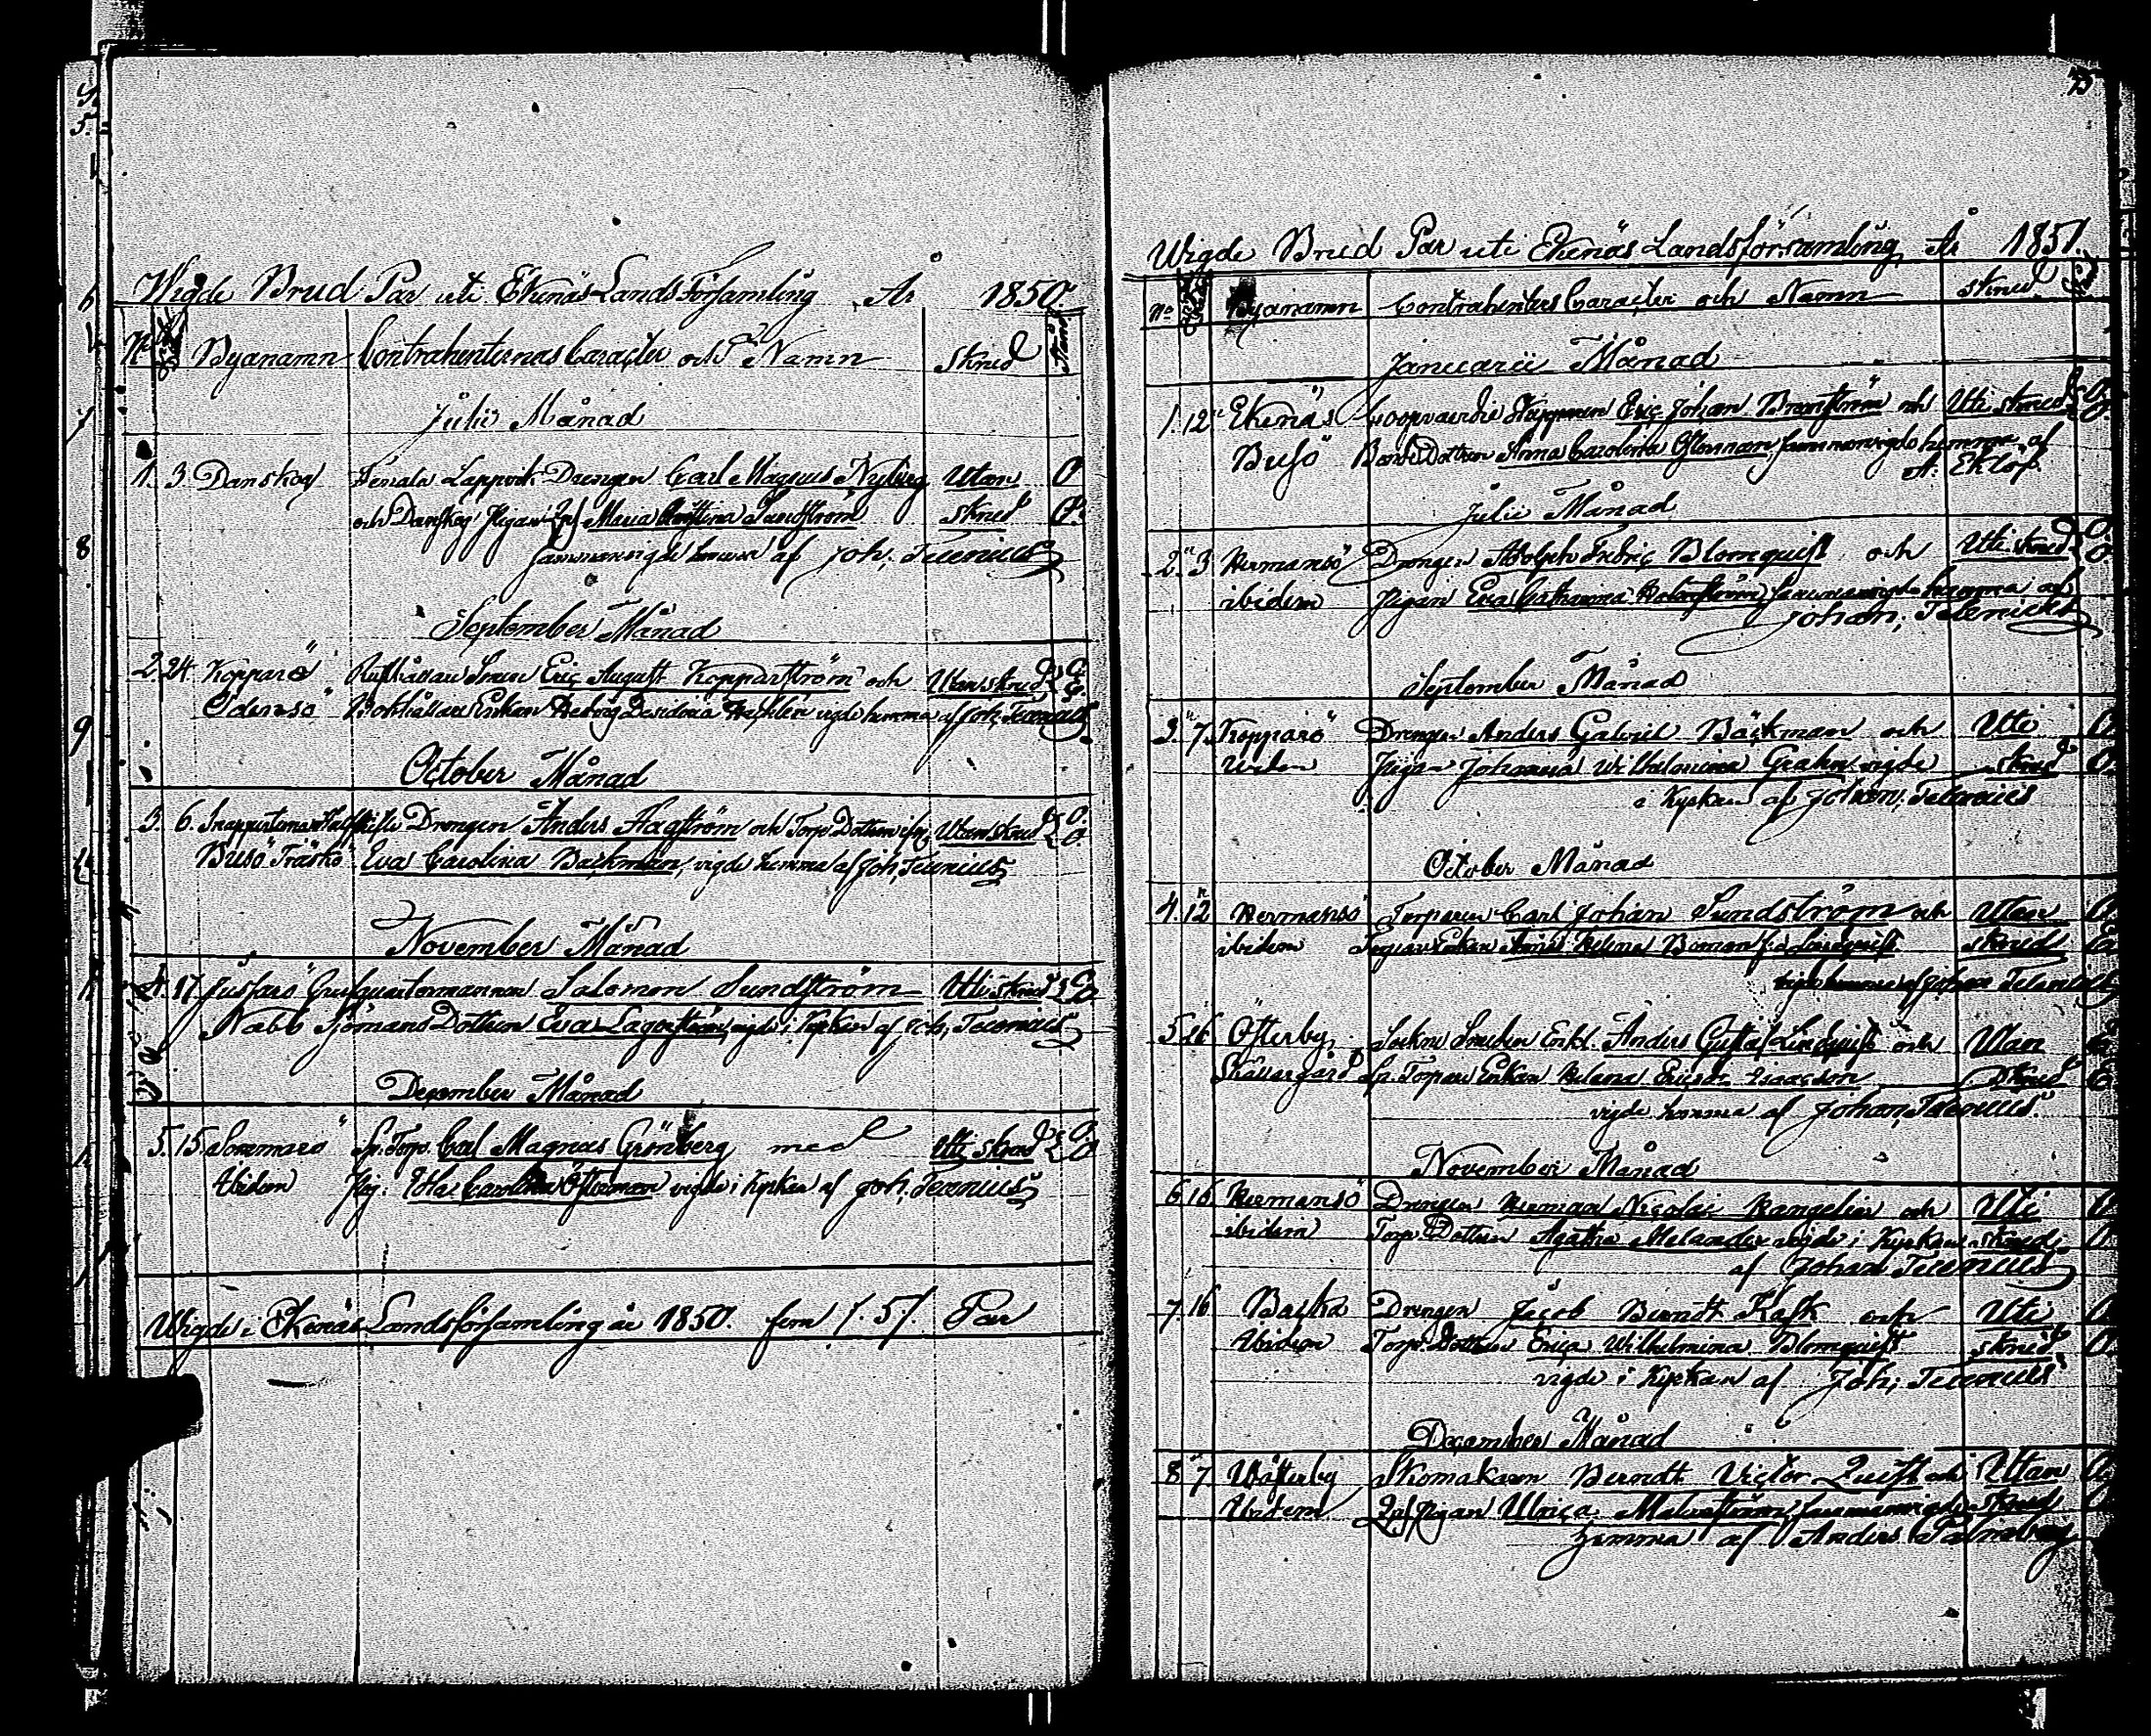 Wigde Brud Par uti Ekenäs Lands Församling År 1850.
No Byanamn Contrahenternas Caracter och Namn Skrud
Julii Månad
1. 3 Danskog Drengen Carl Magnus Nyberg Utan O
och Danskog Pigan Maria Christina Sandström skrud O.
sammanvigde hemma af Joh. Telenius
September Månad
2. 24. Kopparö Eric August Kopparström och Utan skrud
Odensö Enkan Hedvig Desideria vigde hemma af Joh. Telenius
October Månad
3. 6. Drengen Anders Hagström och Torp. Dottren Utan skrud O.
Busö Träskö Eva Carolina Backman, vigde hemma af Joh, Telenius
November Månad
4. 17 Jussarö Salomon Sundström Uti skrud
Nabb Sjömans Dottren Eva Lagerström, vigde i Kyrkan af Joh, Telenius
December Månad
5. 15. Sommarö Sp. Torp. Carl Magnus Grönberg med Uti skrud
Ibidem Pig: Carolina Österman vigde i Kyrkan af Joh. Telenius
Wigde i Ekenäs Landsförsamling år 1850. fem /.5./. Par
Wigde Brud Par uti Ekenäs Landsförsamling År 1851.
No Byanamn Contrahenters Caracter och Namn Skrud
Januarii Månad
1. 12 Ekenäs Coopvaerdie Skepparen Eric Johan och Uti skrud O.
Busö Bonde Dottren Anna Carolina Österman sammanvigde hemma af
A. Eklöf.
Julii Månad
2. 3 Hermansö Drengen Adolph Fredric Blomquist och Uti skrud O.
ibidem Pigan Eva Catharina sammanvigde hemma af
Johan, Telenius
September Månad
3. 7. Kopparö Drengen Anders Gabriel Bäckman och Uti O.
Pigan Johanna Wilhelmina Grahn vigde skrud O.
i Kyrkan af Johan, Telenius
October Månad
4. 12 Hermansö Torparen Carl Johan Sundström och Utan
ibidem Enkan Helena Boman skrud
vigde hemma af Johan Telenius
5. 26 Österby Sockne Enkl. Anders Gustaf Lindqvist och Utan
Sp. Torpare Enkan Helena Ericsd. Isacsson skrud
vigde hemma af Johan, Telenius.
November Månad
6. 16 Hermansö Drengen Herman Nicolai och Uti
ibidem Torp. Dottren Agatha Melander vigde i Kyrkan skrud. O
af Johan Telenius
7. 16 Baska Drengen Jacob Berndt Kask och Uti O
Ibidem Torp. Dottren Erica Wilhelmina Blomquist skrud. O
vigde i Kyrkan af Joh, Telenius
December Månad
8. 7. Wästerby Skomakaren Berndt Victor Quist och Utan
Ibidem Pigan Ulrica Malmström, sammanvigde skrud
hemma af Anders Palmberg